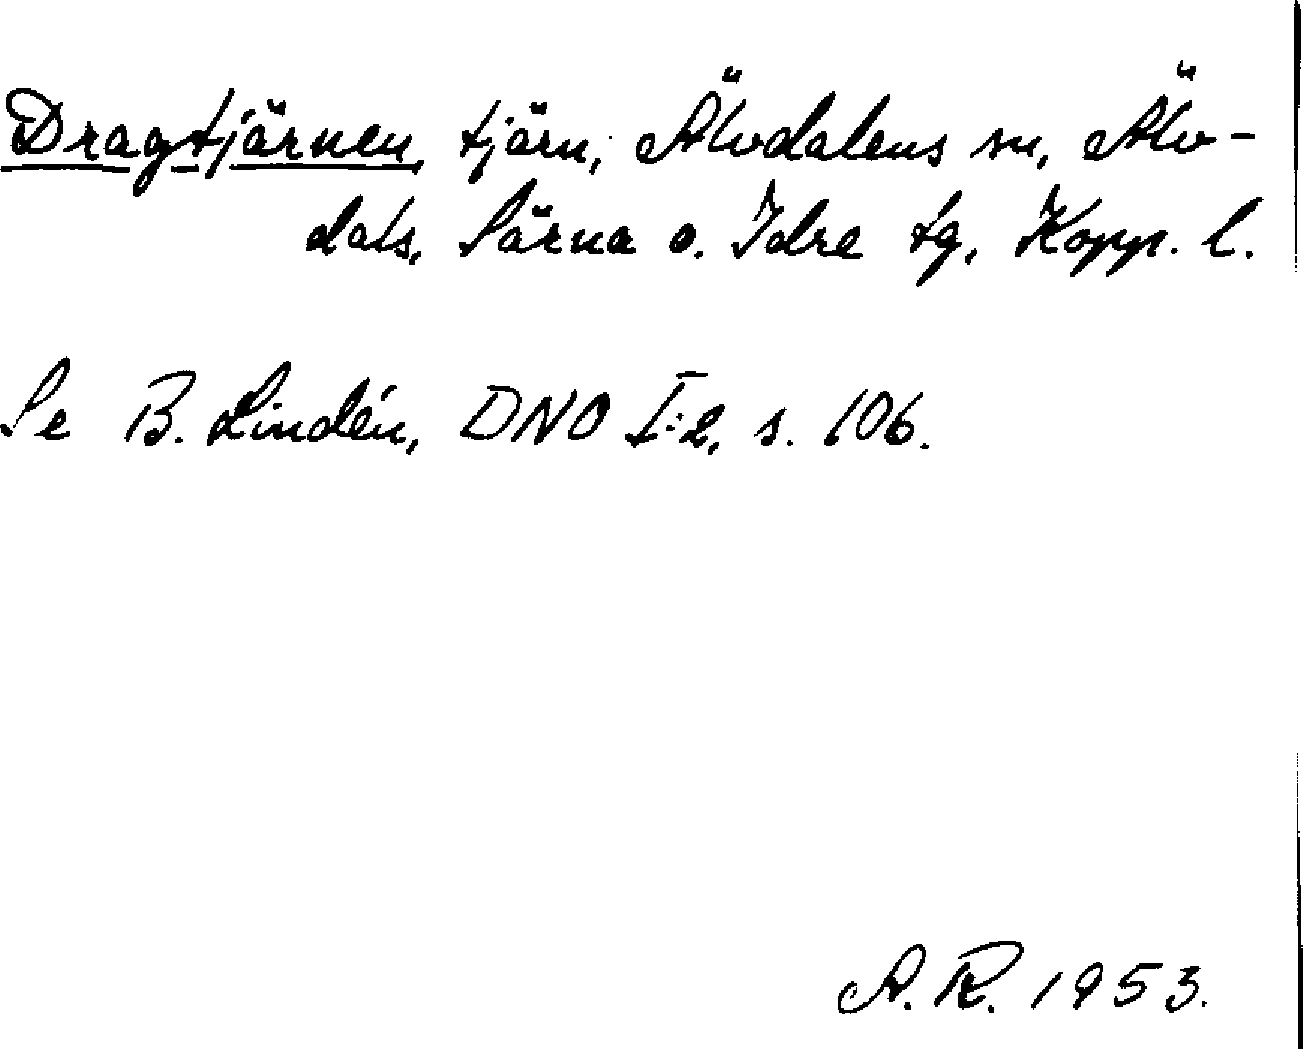 Dragtjärnen, tjärn, Älvdalens sn, Älv-
dals, Särna o. Idre tg, Kopp. l.
Se B. Lindén, DNO I:2, s. 106.
A. R. 1953.